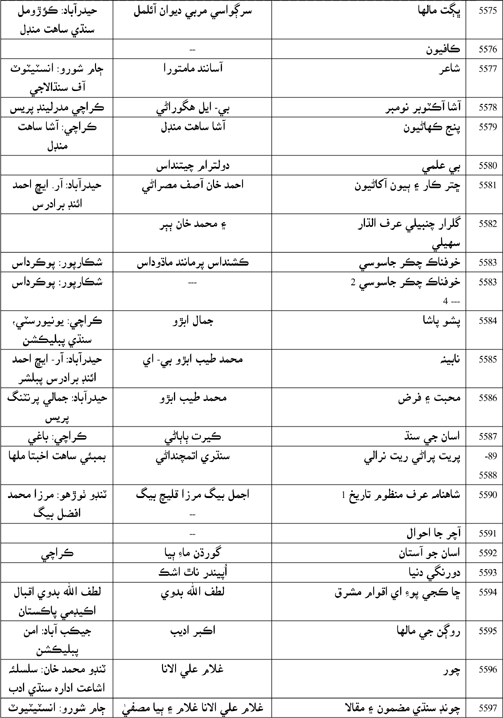 5575 ڀڳت مالها سرڳواسي مربي ديوان آئلمل حيدرآباد: ڪؤڙومل
سنڌي ساهت منڊل
5576 ڪافيون --
5577 شاعر آسانند مامتورا ڄام شورو: انسٽيٽيوٽ
آف سنڌالاجي
5578 آشا آڪٽوبر نومبر بي- ايل هگوراڻي ڪراچي مدرلينڊ پريس
5579 پنج ڪهاڻيون آشا ساهت منڊل ڪراچي: آشا ساهت
منڊل
5580 بي علمي دولترام چيتنداس
5581 چتر ڪار ۽ ٻيون آکاڻيون احمد خان آصف مصراڻي حيدرآباد: آر. ايڇ احمد
ائنڊ برادرس
5582 گلرار چنبيلي عرف الڌار ۽ محمد خان ٻٻر
سهيلي
5583 خوفناڪ چڪر جاسوسي ڪشنداس پرمانند ماڌوداس شڪارپور: پوڪرداس
5583 خوفناڪ چڪر جاسوسي 2 --- شڪارپور: پوڪرداس
--- 4
5584 پشو پاشا جمال ابڙو ڪراچي: يونيورسٽي،
سنڌي پبليڪشن
5585 نابينہ محمد طيب ابڙو بي- اي حيدرآباد: آر- ايڇ احمد
ائنڊ برادرس پبلشر
5586 محبت ۽ فرض محمد طيب ابڙو حيدرآباد: جمالي پرنٽنگ
پريس
5587 اسان جي سنڌ ڪيرت ٻاٻاڻي ڪراچي: باغي
89- پريت پراڻي ريت نرالي سندري اتمچنداڻي بمبئي ساهت اخبتا ملها
5588
5590 شاهنامہ عرف منظوم تاريخ 1 اجمل بيگ مرزا قليچ بيگ ٽنڊو ٺوڙهو: مرزا محمد
-- افضل بيگ
5591 آچر جا احوال --
5592 اسان جو آستان گورڌن ماءِ ٻيا ڪراچي
5593 دورنگي دنيا اُپيندر ناٿ اشڪ
5594 ڇا ڪجي پوءِ اي اقوام مشرق لطف الله بدوي لطف الله بدوي اقبال
اڪيڊمي پاڪستان
5595 روڳن جي مالها اڪبر اديب جيڪب آباد: امن
پبليڪشن
5596 چور غلام علي الانا ٽنڊو محمد خان: سلسلہ
اشاعت اداره سنڌي ادب
5597 چونڊ سنڌي مضمون ۽ مقالا غلام علي الانا غلام ۽ ٻيا مصفيٰ ڄام شورو: انسٽيٽيوٽ